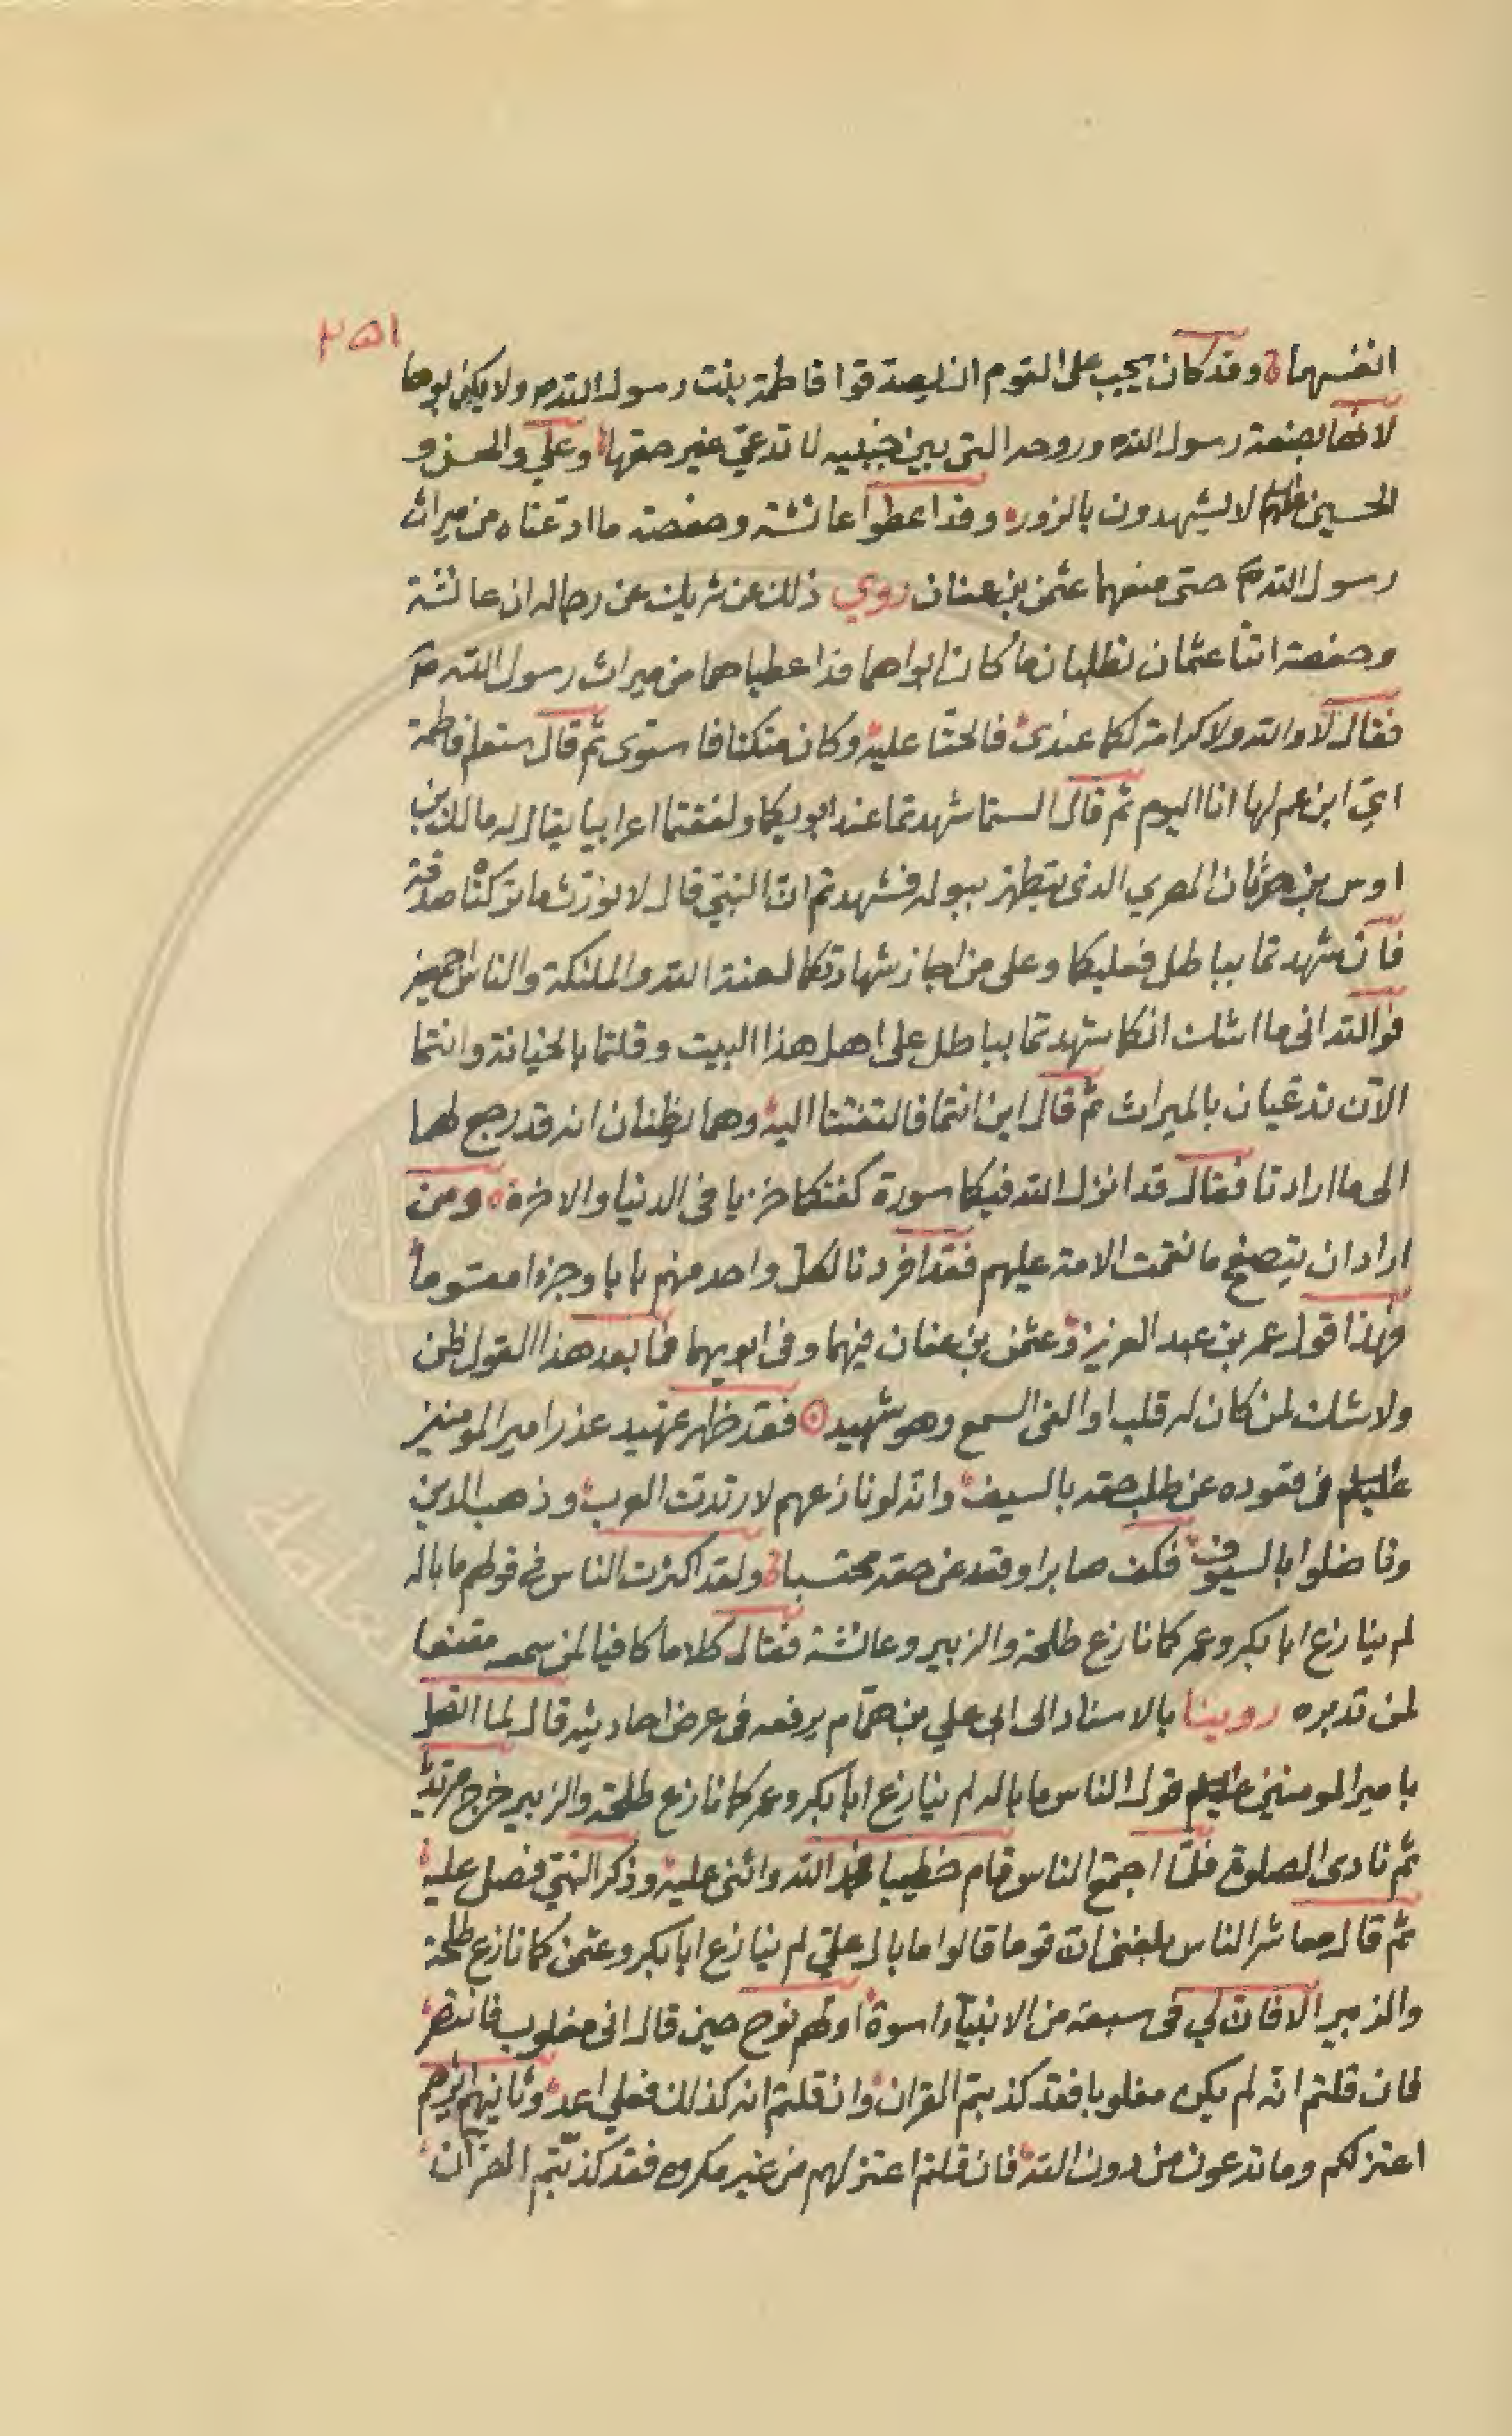 ٢٥١
انفسهما وقد كان يجب على القوم ان يصدقوا فاطمة بنت رسول الله ص ولا يكذبوها
لانها بضعة رسول الله وروحه التي بين جنبيه لا تدعي غير حقها وعلي والحسن و
الحسين عليهم لا يشهدون بالزور وقد اعطوا عائشة وحفصة ما ادعتاه من ميراث
رسول الله ص حتى منعهما عثمن بن عفان روي ذلك عن شريك عن رجاله ان عائشة
وحفصة اتتا عثمان تطلبان ما كان ابواهما قد اعطياهما من ميراث رسول الله ص
فقال لا والله ولا كرامة لكما عندي فالحتا عليه وكان متكئا فاستوى ثم قال ستعلم فاطمة
اي ابن عم لها انا اليوم ثم قال الستما شهدتما عند ابويكما ولفقتما اعرابيا يقال له مالك بن
اوس بن حدثان الذي يتطهر ببوله فشهدتم ان النبي قال لا نورث ما تركنا صدقة
فان شهدتما بباطل فعليكما وعلى من اجاز شهادتكما لعنة الله والملئكة والناس اجمعين
فوالله اني ما اشك انكما شهدتما بباطل على اهل هذا البيت وقلتما بالخيانة وانتما
الآن تدعيان بالميراث ثم قال اين انتما فالتفتتا اليه وهما يظنان انه قد رجع لهما
الى ما ارادتا فقال قد انزل الله فيكما سورة كفتكما خزيا في الدنيا والاخرة ومن
اراد ان يتصفح ما نقمت الامة عليهم فقد افردنا لكل واحد منهم بابا وجزءا مقسوما
فهذا قول عمر بن عبد العزيز وعثمن بن عفان فيهما وفي ابويهما فما بعد هذا القول ظن
ولا شك لمن كان له قلب او القى السمع وهو شهيد فقد ظهر عذر امير المومنين
عليه السلم في قعوده عن طلب حقه بالسيف وانه لو نازعهم لارتدت العرب وذهب الدين
وناضلوا بالسيوف فكف صابرا وقعد عن حقه محتسبا ولقد اكثرت الناس في قولهم ما باله
لم ينازع ابا بكر وعمر كما نازع طلحة والزبير وعائشة فقال كلاما كافيا لمن سمعه مقنعا
لمن تدبره روينا بالاسناد الى ابي علي بن همام يرفعه في عرض احاديثه قال لما اتصل
بامير المومنين عليه السلم قول الناس ما باله لم ينازع ابا بكر وعمر كما نازع طلحة والزبير خرج مرتديا
ثم نادى الصلوة فلما اجتمع الناس قام خطيبا فحمد الله واثنى عليه وذكر النبي فصلى عليه
ثم قال معاشر الناس بلغني ان قوما قالوا ما بال علي لم ينازع ابا بكر وعثمن كما نازع طلحة
والزبير الا فان لي في سبعة من الانبياء اسوة اولهم نوح حين قال اني مغلوب فانتصر
فان قلتم انه لم يكن مغلوبا فقد كذبتم القران وان قلتم انه كذلك فعلي اعذر وثانيهم ابرهيم
اعتزلكم وما تدعون من دون الله فان قلتم اعتزلهم من غير مكروه فقد كذبتم القرآن